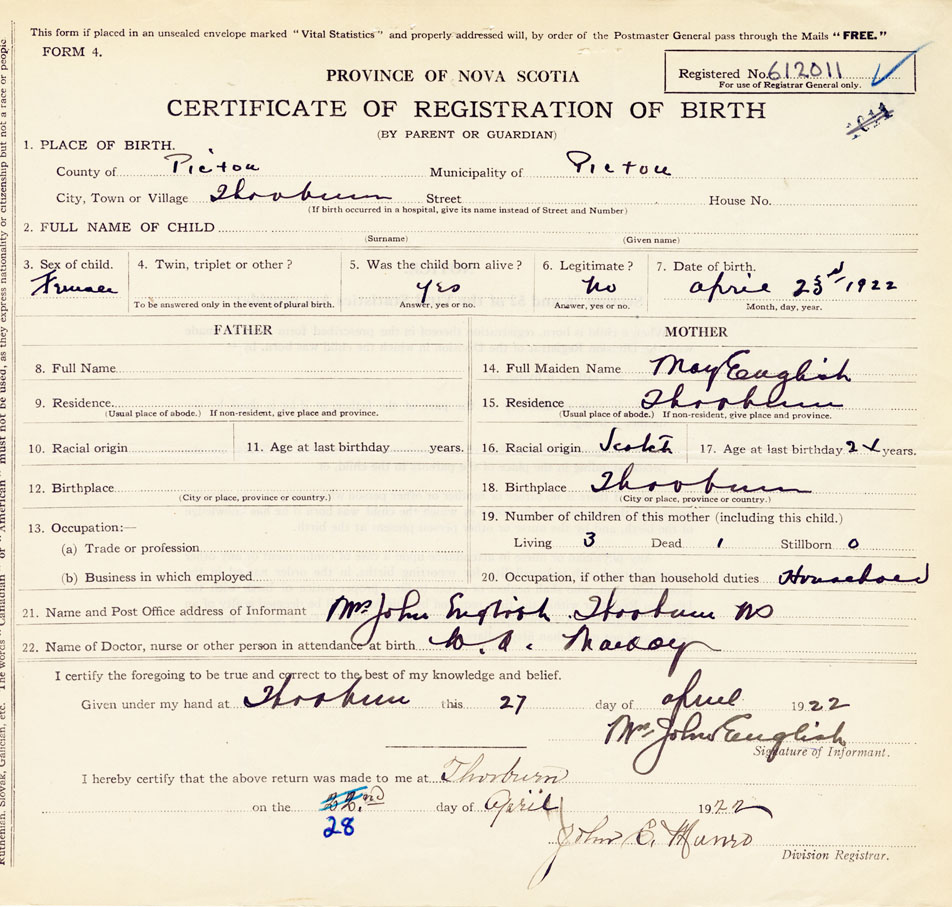 This form if placed in an unsealed envelope marked "Vital Statistics" and properly addressed will, by order of the Postmaster General pass through the Mails "FREE."
FORM 4.
PROVINCE OF NOVA SCOTIA
Registered No. 612011
For use of Registrar General only.
CERTIFICATE OF REGISTRATION OF BIRTH
(BY PARENT OR GUARDIAN)
1. PLACE OF BIRTH.
County of Pictou Municipality of Pictou
City, Town or Village Thorburn Street House No.
(If birth occurred in a hospital, give its name instead of Street and Number)
2. FULL NAME OF CHILD
(Surname) (Given name)
3. Sex of child. 4. Twin, triplet or other? 5. Was the child born alive? 6. Legitimate? 7. Date of birth.
Female yes no April 23rd 1922
To be answered only in the event of plural birth. Answer, yes or no. Answer, yes or no. Month, day, year.
FATHER MOTHER
8. Full Name 14. Full Maiden Name May English
9. Residence 15. Residence Thorburn
(Usual place of abode.) If non-resident, give place and province. (Usual place of abode.) If non-resident, give place and province.
10. Racial origin 11. Age at last birthday years. 16. Racial origin Scotch 17. Age at last birthday years.
12. Birthplace 18. Birthplace Thorburn
(City or place, province or country.) (City or place, province or country.)
13. Occupation:— 19. Number of children of this mother (including this child.)
(a) Trade or profession Living 3 Dead 1 Stillborn 0
(b) Business in which employed 20. Occupation, if other than household duties Household
21. Name and Post Office address of Informant Mrs John English Thorburn NS
22. Name of Doctor, nurse or other person in attendance at birth
I certify the foregoing to be true and correct to the best of my knowledge and belief.
Given under my hand at Thorburn this 27 day of April 1922
Mrs John English
Signature of Informant.
I hereby certify that the above return was made to me at Thorburn
on the 22nd day of April 1922
28
John E. Munro
Division Registrar.
The words "Canadian" or "American" must not be used, as they express nationality or citizenship but not a race or people
Ruthenian, Slovak, Galician, etc.